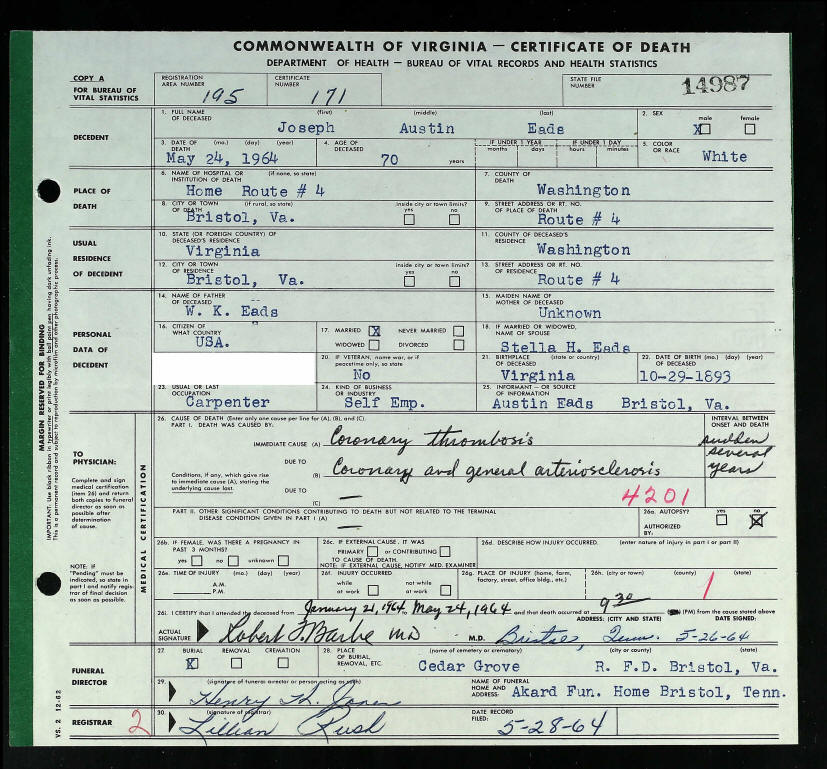 COMMONWEALTH OF VIRGINIA — CERTIFICATE OF DEATH
DEPARTMENT OF HEALTH — BUREAU OF VITAL RECORDS AND HEALTH STATISTICS
COPY A
FOR BUREAU OF VITAL STATISTICS
REGISTRATION AREA NUMBER 195
CERTIFICATE NUMBER 171
STATE FILE NUMBER 14987
DECEDENT
1. FULL NAME OF DECEASED (first) (middle) (last)
Joseph Austin Eads
2. SEX male X female
3. DATE OF DEATH (mo.) (day) (year)
May 24, 1964
4. AGE OF DECEASED 70 years
IF UNDER 1 YEAR months days
IF UNDER 1 DAY hours minutes
5. COLOR OR RACE White
PLACE OF DEATH
6. NAME OF HOSPITAL OR INSTITUTION OF DEATH (if none, so state)
Home Route # 4
7. COUNTY OF DEATH
Washington
8. CITY OR TOWN OF DEATH (if rural, so state) inside city or town limits? yes no
Bristol, Va.
9. STREET ADDRESS OR RT. NO. OF PLACE OF DEATH
Route # 4
USUAL RESIDENCE OF DECEDENT
10. STATE (OR FOREIGN COUNTRY) OF DECEASED'S RESIDENCE
Virginia
11. COUNTY OF DECEASED'S RESIDENCE
Washington
12. CITY OR TOWN OF RESIDENCE inside city or town limits? yes no
Bristol, Va.
13. STREET ADDRESS OR RT. NO. OF RESIDENCE
Route # 4
PERSONAL DATA OF DECEDENT
14. NAME OF FATHER OF DECEASED
W. K. Eads
15. MAIDEN NAME OF MOTHER OF DECEASED
Unknown
16. CITIZEN OF WHAT COUNTRY
USA.
17. MARRIED X NEVER MARRIED
WIDOWED DIVORCED
18. IF MARRIED OR WIDOWED, NAME OF SPOUSE
Stella H. Eads
20. IF VETERAN, name war, or if peacetime only, so state
No
21. BIRTHPLACE OF DECEASED (state or country)
Virginia
22. DATE OF BIRTH (mo.) (day) (year)
10-29-1893
23. USUAL OR LAST OCCUPATION
Carpenter
24. KIND OF BUSINESS OR INDUSTRY
Self Emp.
25. INFORMANT - OR SOURCE OF INFORMATION
Austin Eads Bristol, Va.
MARGIN RESERVED FOR BINDING
IMPORTANT: Use black ribbon in typewriter or print legibly with ball point pen having dark unfading ink.
This is a permanent record and subject to reproduction by microfilm and other photographic process.
TO PHYSICIAN:
Complete and sign medical certification (item 26) and return both copies to funeral director as soon as possible after determination of cause.
NOTE: IF "Pending" must be indicated, so state in part I and notify registrar of final decision as soon as possible.
MEDICAL CERTIFICATION
26. CAUSE OF DEATH (Enter only one cause per line for (A), (B), and (C).
PART I. DEATH WAS CAUSED BY:
INTERVAL BETWEEN ONSET AND DEATH
IMMEDIATE CAUSE (A) Coronary thrombosis sudden
DUE TO
Conditions, if any, which gave rise to immediate cause (A), stating the underlying cause last.
(B) Coronary and general arteriosclerosis several years
DUE TO
(C) —
4201
PART II. OTHER SIGNIFICANT CONDITIONS CONTRIBUTING TO DEATH BUT NOT RELATED TO THE TERMINAL DISEASE CONDITION GIVEN IN PART I (A)
—
26a. AUTOPSY? yes no X
AUTHORIZED BY:
26b. IF FEMALE, WAS THERE A PREGNANCY IN PAST 3 MONTHS?
yes no unknown
26c. IF EXTERNAL CAUSE, IT WAS
PRIMARY or CONTRIBUTING
TO CAUSE OF DEATH.
NOTE: IF EXTERNAL CAUSE, NOTIFY MED. EXAMINER
26d. DESCRIBE HOW INJURY OCCURRED. (enter nature of injury in part I or part II)
26e. TIME OF INJURY (mo.) (day) (year)
A.M.
P.M.
26f. INJURY OCCURRED
while at work not while at work
26g. PLACE OF INJURY (home, farm, factory, street, office bldg., etc.)
26h. (city or town) (county) (state)
1
26i. I CERTIFY that I attended the deceased from January 21, 1964 to May 24, 1964 and that death occurred at 9 30 (PM) from the cause stated above
ADDRESS: (CITY AND STATE) DATE SIGNED:
ACTUAL SIGNATURE Robert F. Barbe MD M.D. Bristol, Tenn. 5-26-64
FUNERAL DIRECTOR
27. BURIAL X REMOVAL CREMATION
28. PLACE OF BURIAL, REMOVAL, ETC. (name of cemetery or crematory) (city or county) (state)
Cedar Grove R. F.D. Bristol, Va.
29. (signature of funeral director or person acting as such)
Henry H. Jones
NAME OF FUNERAL HOME AND ADDRESS: Akard Fun. Home Bristol, Tenn.
REGISTRAR
2
30. (signature of registrar)
Lillian Rush
DATE RECORD FILED: 5-28-64
VS. 2 12-62